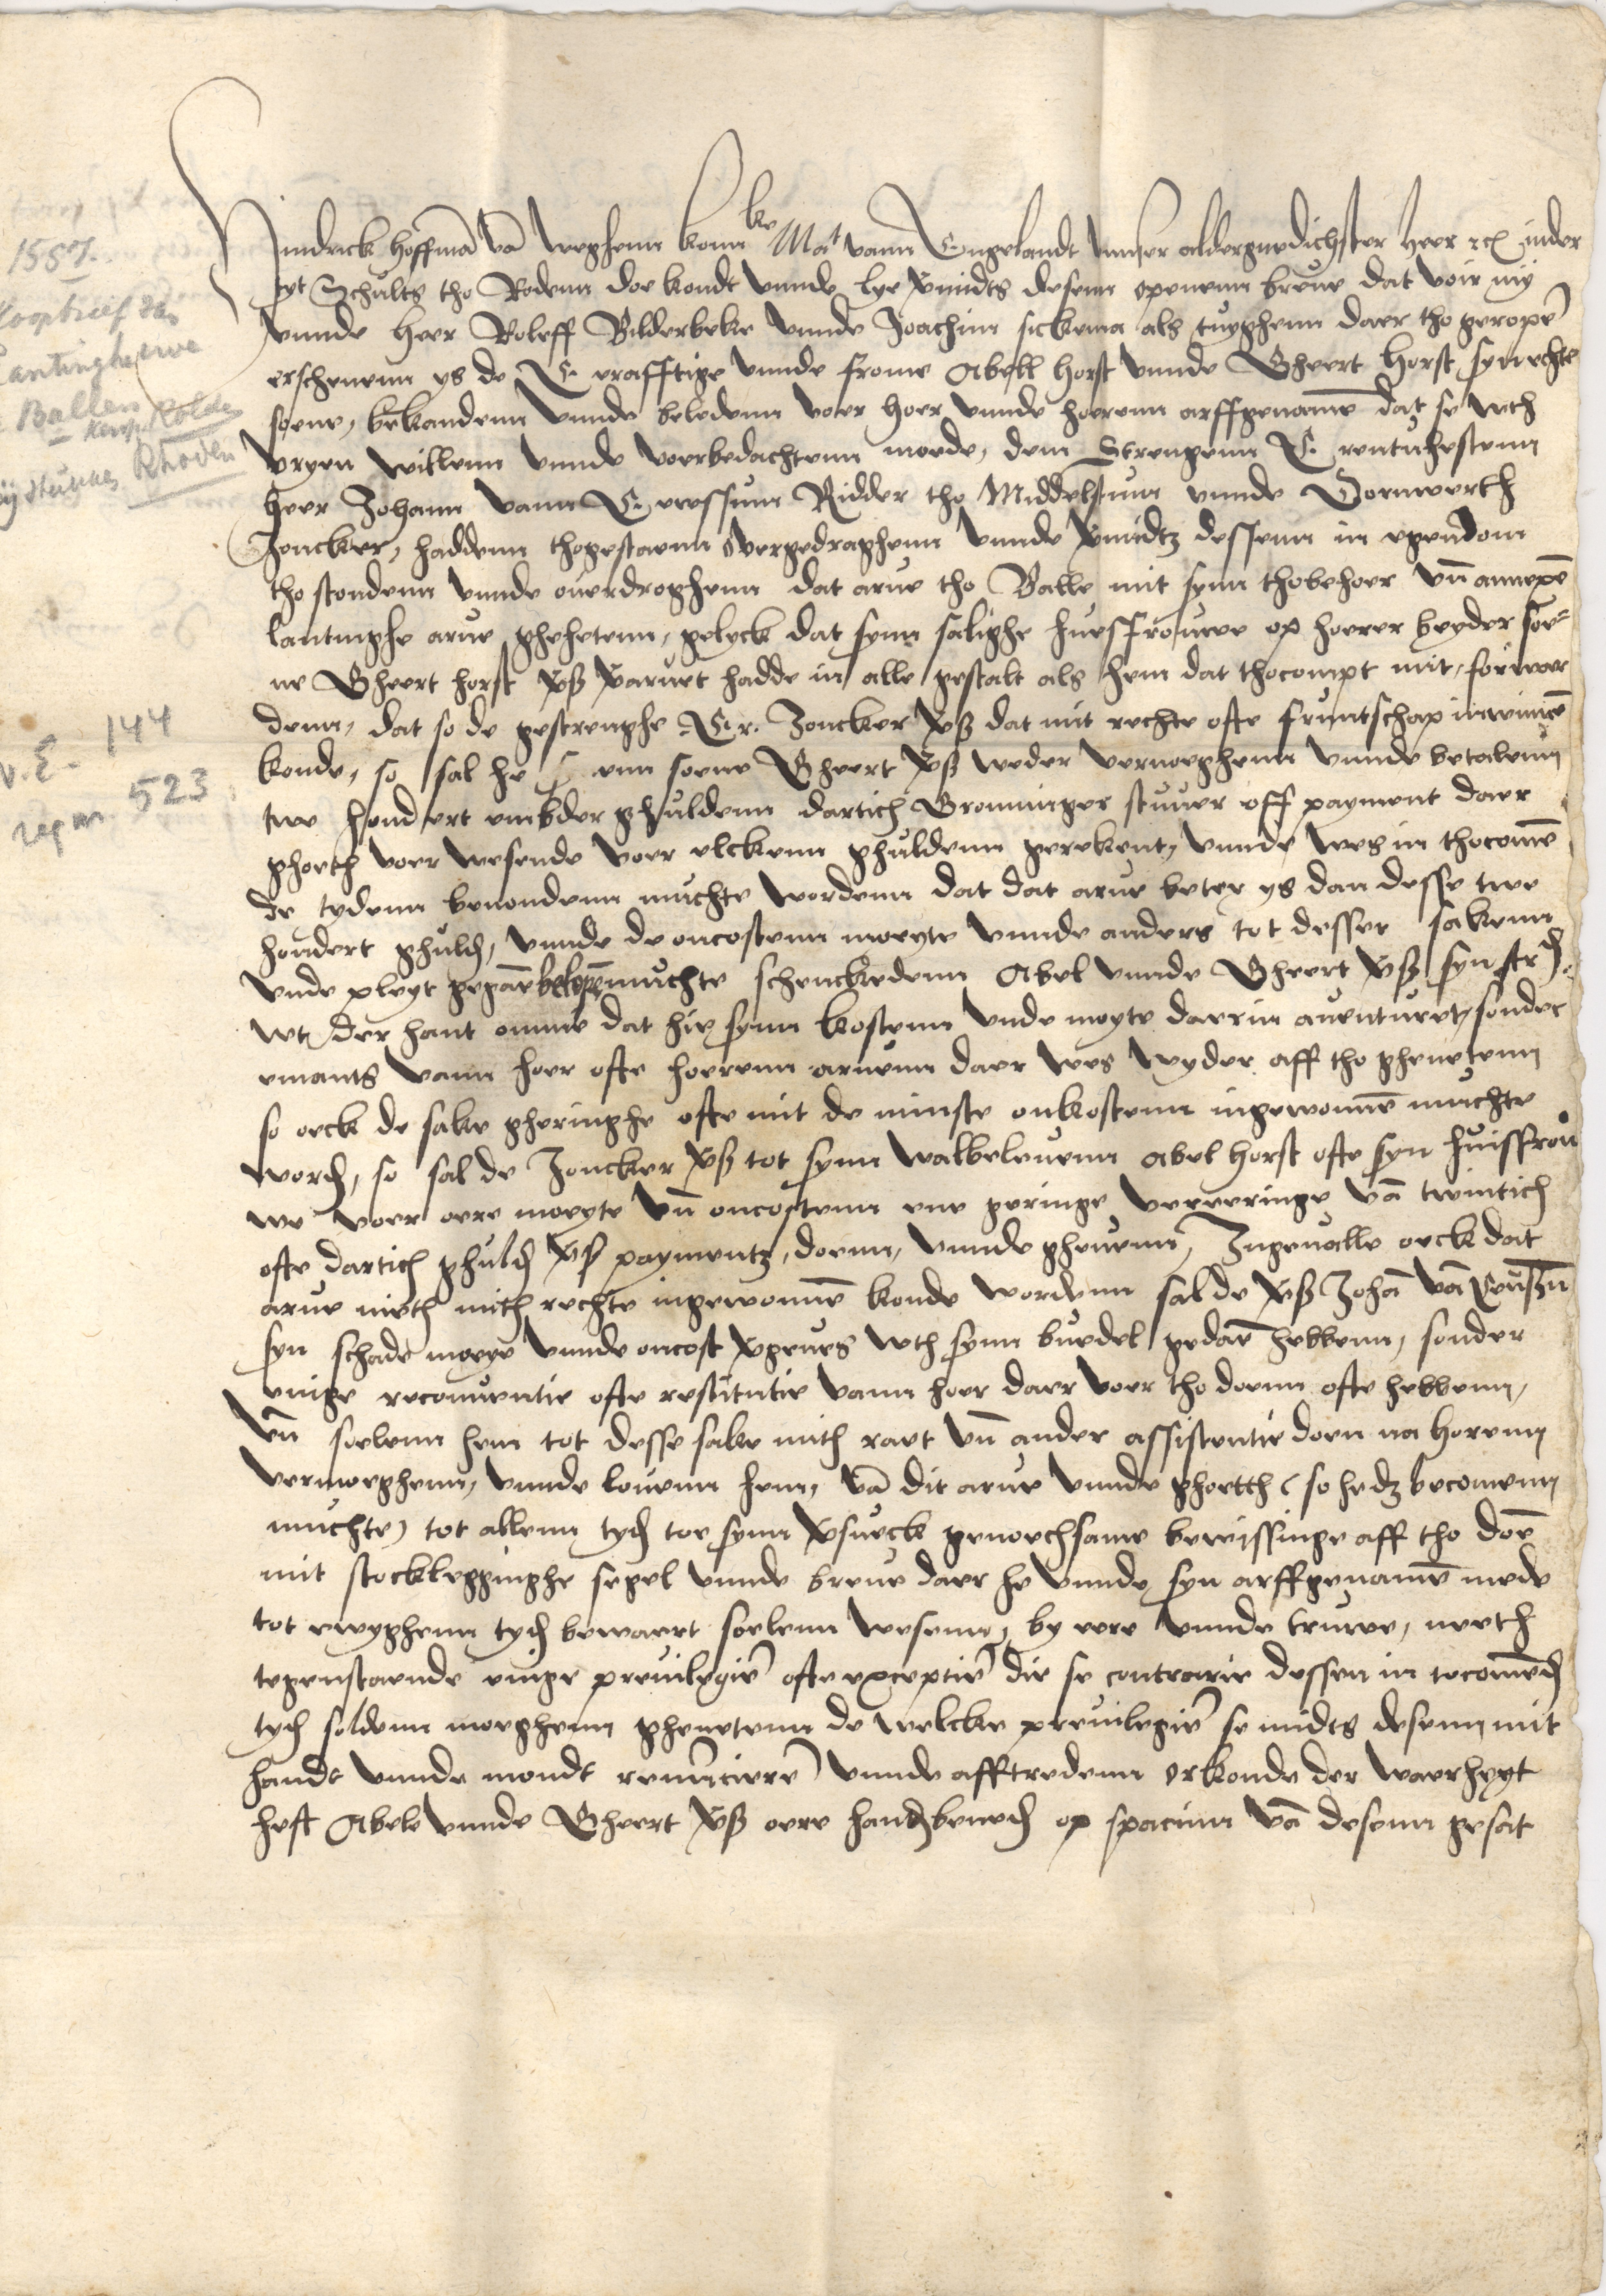 1557.
Koopbrief van
Lantinghe erve
Ballen
kersp. Rolde
bij stukken Rhoden
v. E. 144
reg nr. 523
Hindrick Hoffma va weghenn konn ke Mat vann Engelandt unnser aldergnedichster heer etc inder
tyt Schults tho Rodenn doe kondt unnde lye vmidts desenn openenn breue dat voir my
unnde heer Roleff Bilderbeke unnde Joachim sickema als tuyghenn daer tho geropē
erschenenn ys de E. erafftige unnde frome Abell Horst unnde Gheert Horst syn echte
soene, bekandenn unnde beledenn voer hoer unnde hoerenn arffgenamē dat se wth
vryen willenn unnde voerbedachtenn moede, dem Strengenn E. erentuhestenn
heer Johann vann Ewssum Ridder tho Middelstum unnde Dornwerth
Joncker, haddenn thogestaenn ouergedraghenn unnde vmidtz dessenn in egendom
tho stondenn unnde ouerdroghenn dat arue tho Balle mit synn thobehoer vn̄ annexē
lantinghe arue ghehetenn, gelyck dat synn salighe huesfrouwe op hoerer beyder soe=
ne Gheert horst vß varuet hadde in alle gestalt als hem dat thocompt mit, forwar
denn, dat so de gestrenghe Er. Joncker vß dat mit rechte ofte fruntschap inwinnē
konde, so sal he synenn soene Gheert vß weder vernoeghenn unnde betalenn
twe hondert embder ghuldenn dartich Groninger stuuer off payment daer
ghoeth voer wesende voer elckenn ghuldenn gerekent, unnde wes in thocomē
de tydenn beuondenn muchte wordenn dat dat arue beter ys dan desse twe
hondert ghuldn, unnde de oncostenn moeyte unnde anders tot desser sakenn
unde pleyt gegaē belopē muchte schenckedenn Abel unnde Gheert vß syn str
wt der hant omme dat hie synn kostenn unde moyte daerin auenturet, sonder
emants vann hoer ofte hoerenn aruenn daer wes wyder aff tho ghenetenn
so oeck de sake gheringhe ofte mit de minste onkostenn ingewonnē muchte
wordn, so sal de Joncker vß tot synn walbeleuenn Abel horst ofte syn huisfrou
we voer oere moeyte vn̄ oncostenn ene geringe vereeringe va twintich
ofte dartich ghuldn vß paymentz, doenn, unnde gheuenn, Ingeualle oeck dat
arue nieth mith rechte ingewonnē konde wordenn sal de vß Joha va Ewßū
syn schade moeye unnde oncost vgeues wth synn buedel gedaē hebbenn, sonder
enige reconuentie ofte restitutie vann hoer daer voer tho doenn ofte hebbenn,
vn̄ soelenn hem tot desse sake mith raet vn̄ ander assistentie doen na horenn
vermoeghenn, unnde louenn hem, va dit arue unnde ghoetth (so hedz becomenn
muchte) tot allenn tydn toe synn vsueck genoechsame bewissinge aff tho doē
mit stocklegginghe segel unnde breue daer he unnde syn arffgenamē mede
tot ewyghenn tydn bewaert soelenn wesenn, by eere unnde truwe, neeth
tegenstaende enige preuilegiē ofte exceptiē die se contrarie dessen in tocomēdn
tydn soldenn moeghenn ghenetenn de welcke preuilegiē se midts desenn mit
handt unnde mondt renunciērē unnde afftredenn orkonde der waerheyt
heft Abele unnde Gheert vß oere handn benedn op spacium va desenn gesat